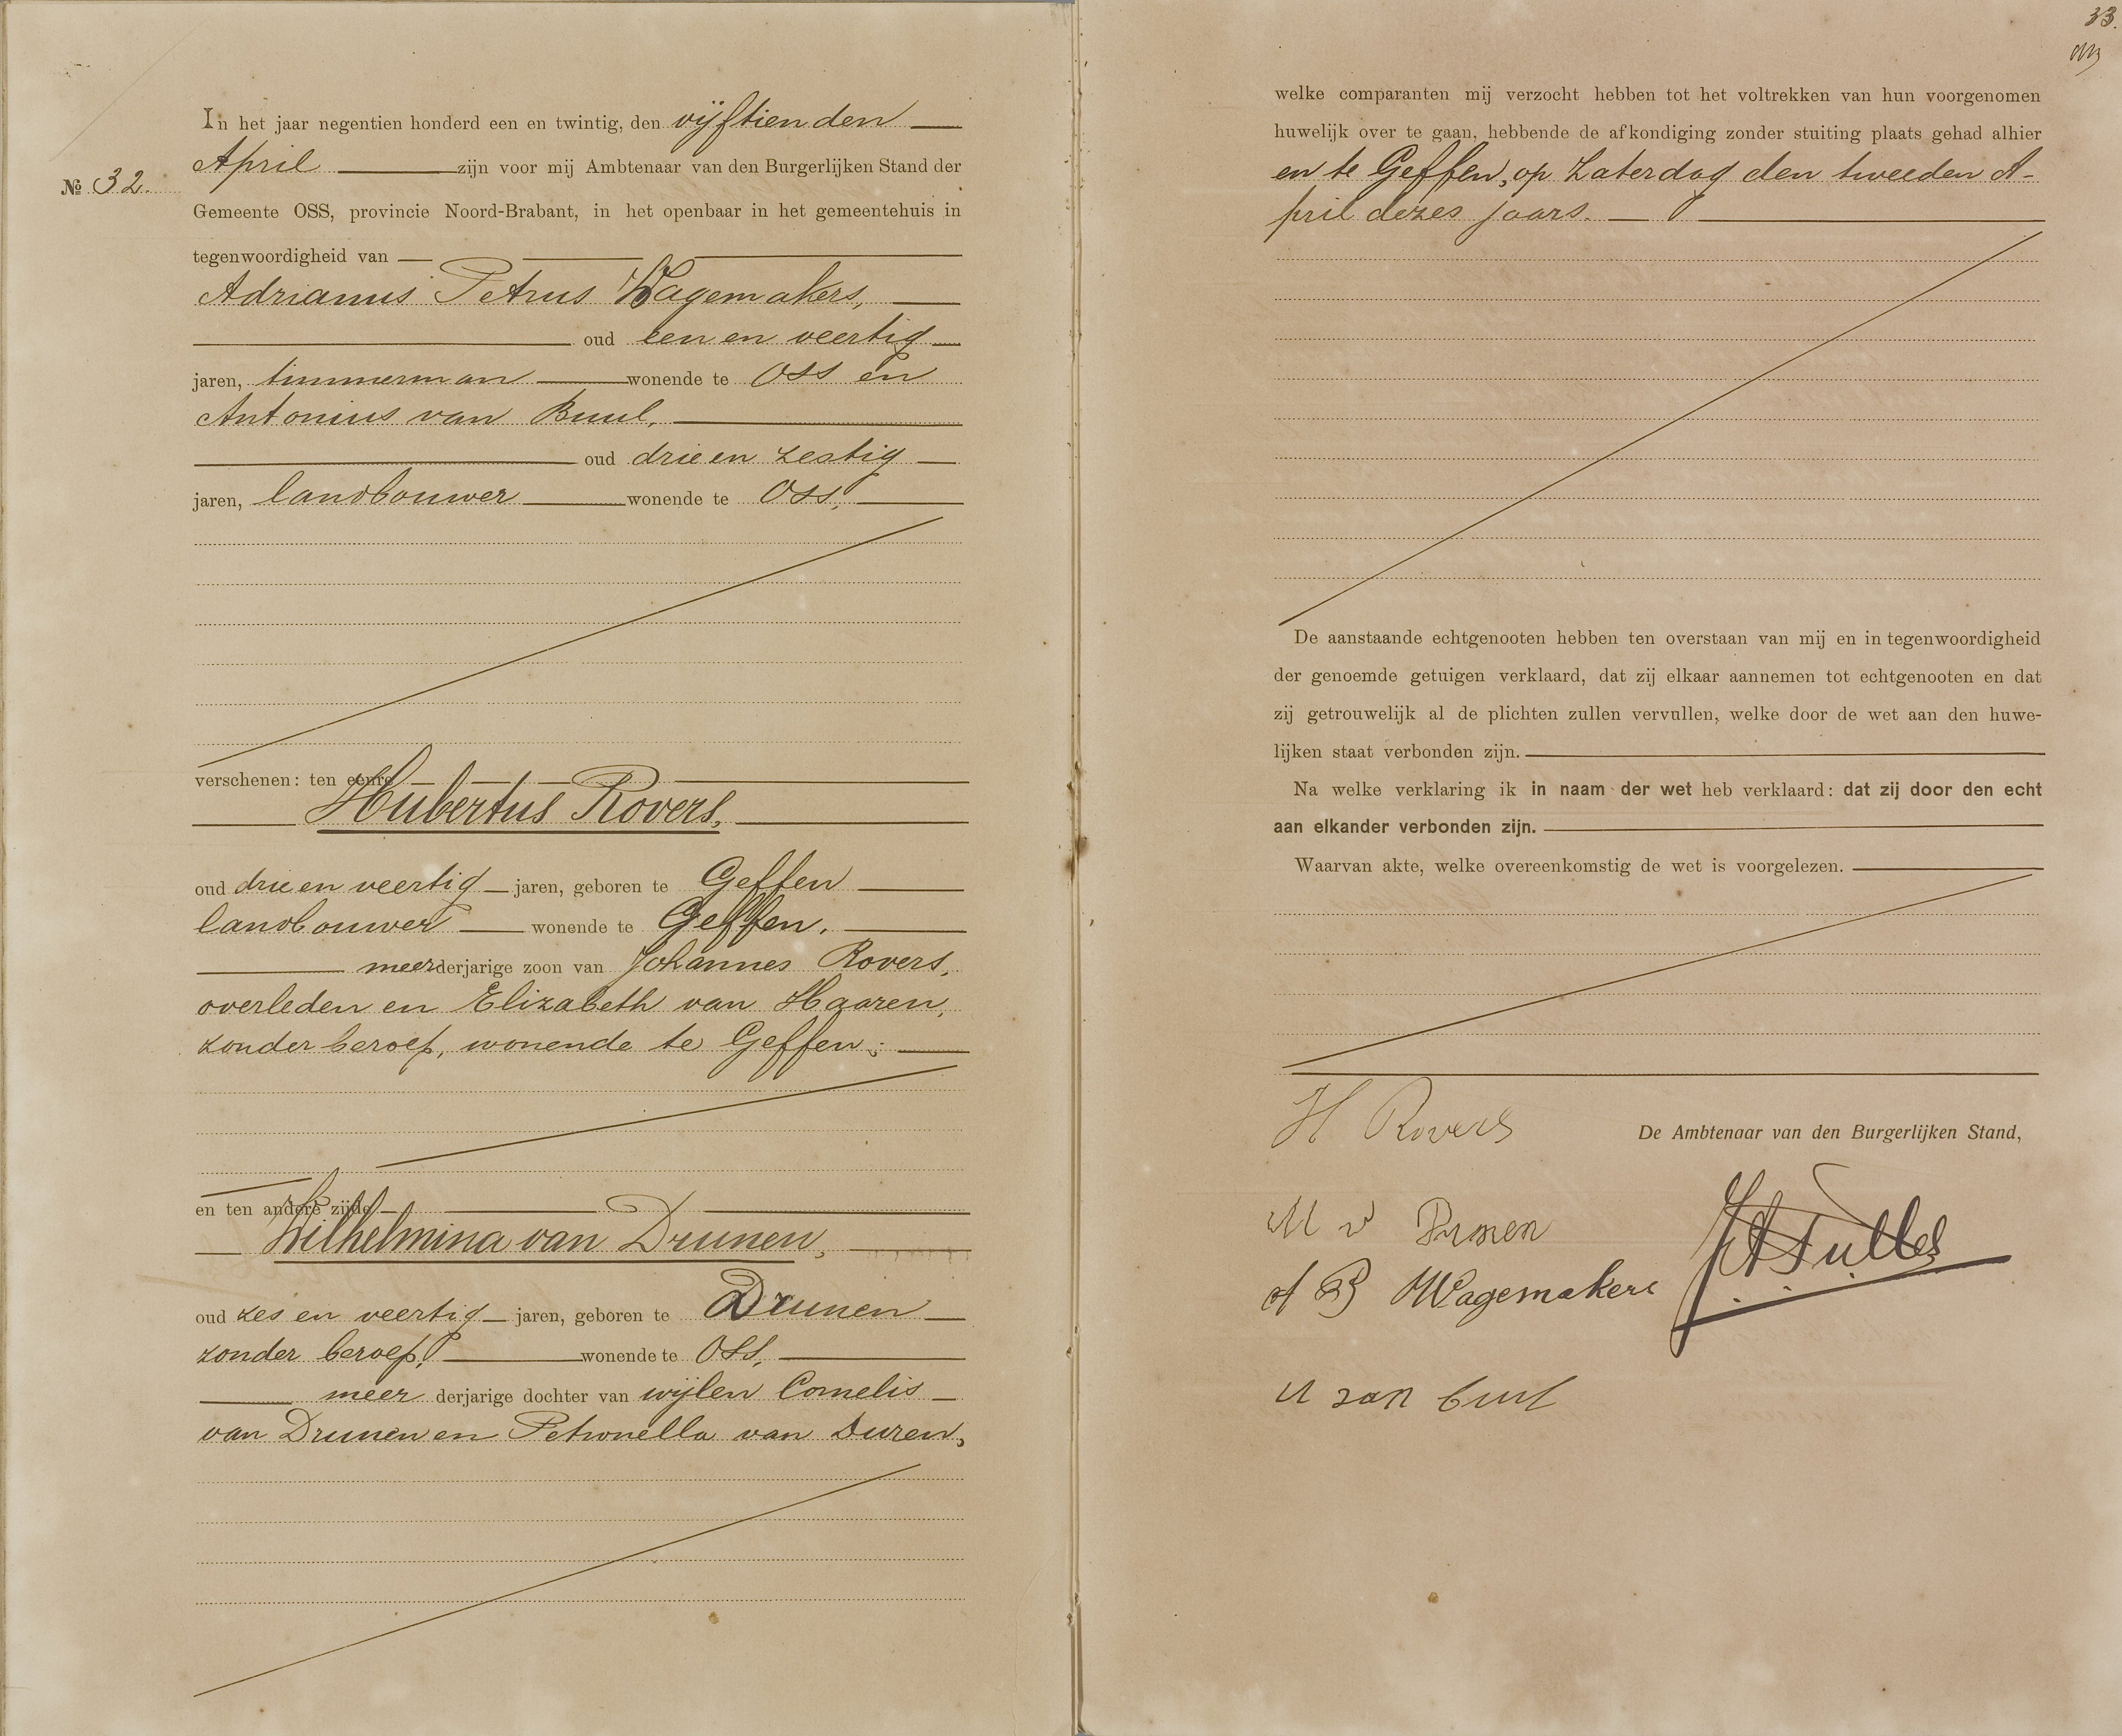 In het jaar negentien honderd een en twintig, den vijftienden
April zijn voor mij Ambtenaar van den Burgerlijken Stand der
No 32.
Gemeente OSS, provincie Noord-Brabant, in het openbaar in het gemeentehuis in
tegenwoordigheid van
Adrianus Petrus Wagemakers,
oud een en veertig
jaren, timmerman wonende te Oss en
Antonius van Buul,
oud drie en zestig
jaren, landbouwer wonende te Oss,
verschenen: ten eenre
Hubertus Rovers,
oud drie en veertig jaren, geboren te Geffen
landbouwer wonende te Geffen,
meerderjarige zoon van Johannes Rovers,
overleden en Elizabeth van Haaren,
zonder beroep, wonende te Geffen;
en ten andere zijde
Wilhelmina van Drunen,
oud zes en veertig jaren, geboren te Drunen
zonder beroep, wonende te Oss,
meer derjarige dochter van wijlen Cornelis
van Drunen en Petronella van Duren,
33.
welke comparanten mij verzocht hebben tot het voltrekken van hun voorgenomen
huwelijk over te gaan, hebbende de afkondiging zonder stuiting plaats gehad alhier
en te Geffen, op Zaterdag den tweeden A-
pril dezes jaars.
De aanstaande echtgenooten hebben ten overstaan van mij en in tegenwoordigheid
der genoemde getuigen verklaard, dat zij elkaar aannemen tot echtgenooten en dat
zij getrouwelijk al de plichten zullen vervullen, welke door de wet aan den huwe-
lijken staat verbonden zijn.
Na welke verklaring ik in naam der wet heb verklaard: dat zij door den echt
aan elkander verbonden zijn.
Waarvan akte, welke overeenkomstig de wet is voorgelezen.
H Rovers
De Ambtenaar van den Burgerlijken Stand,
M v Drunen
A P Wagemakers
A van Buul